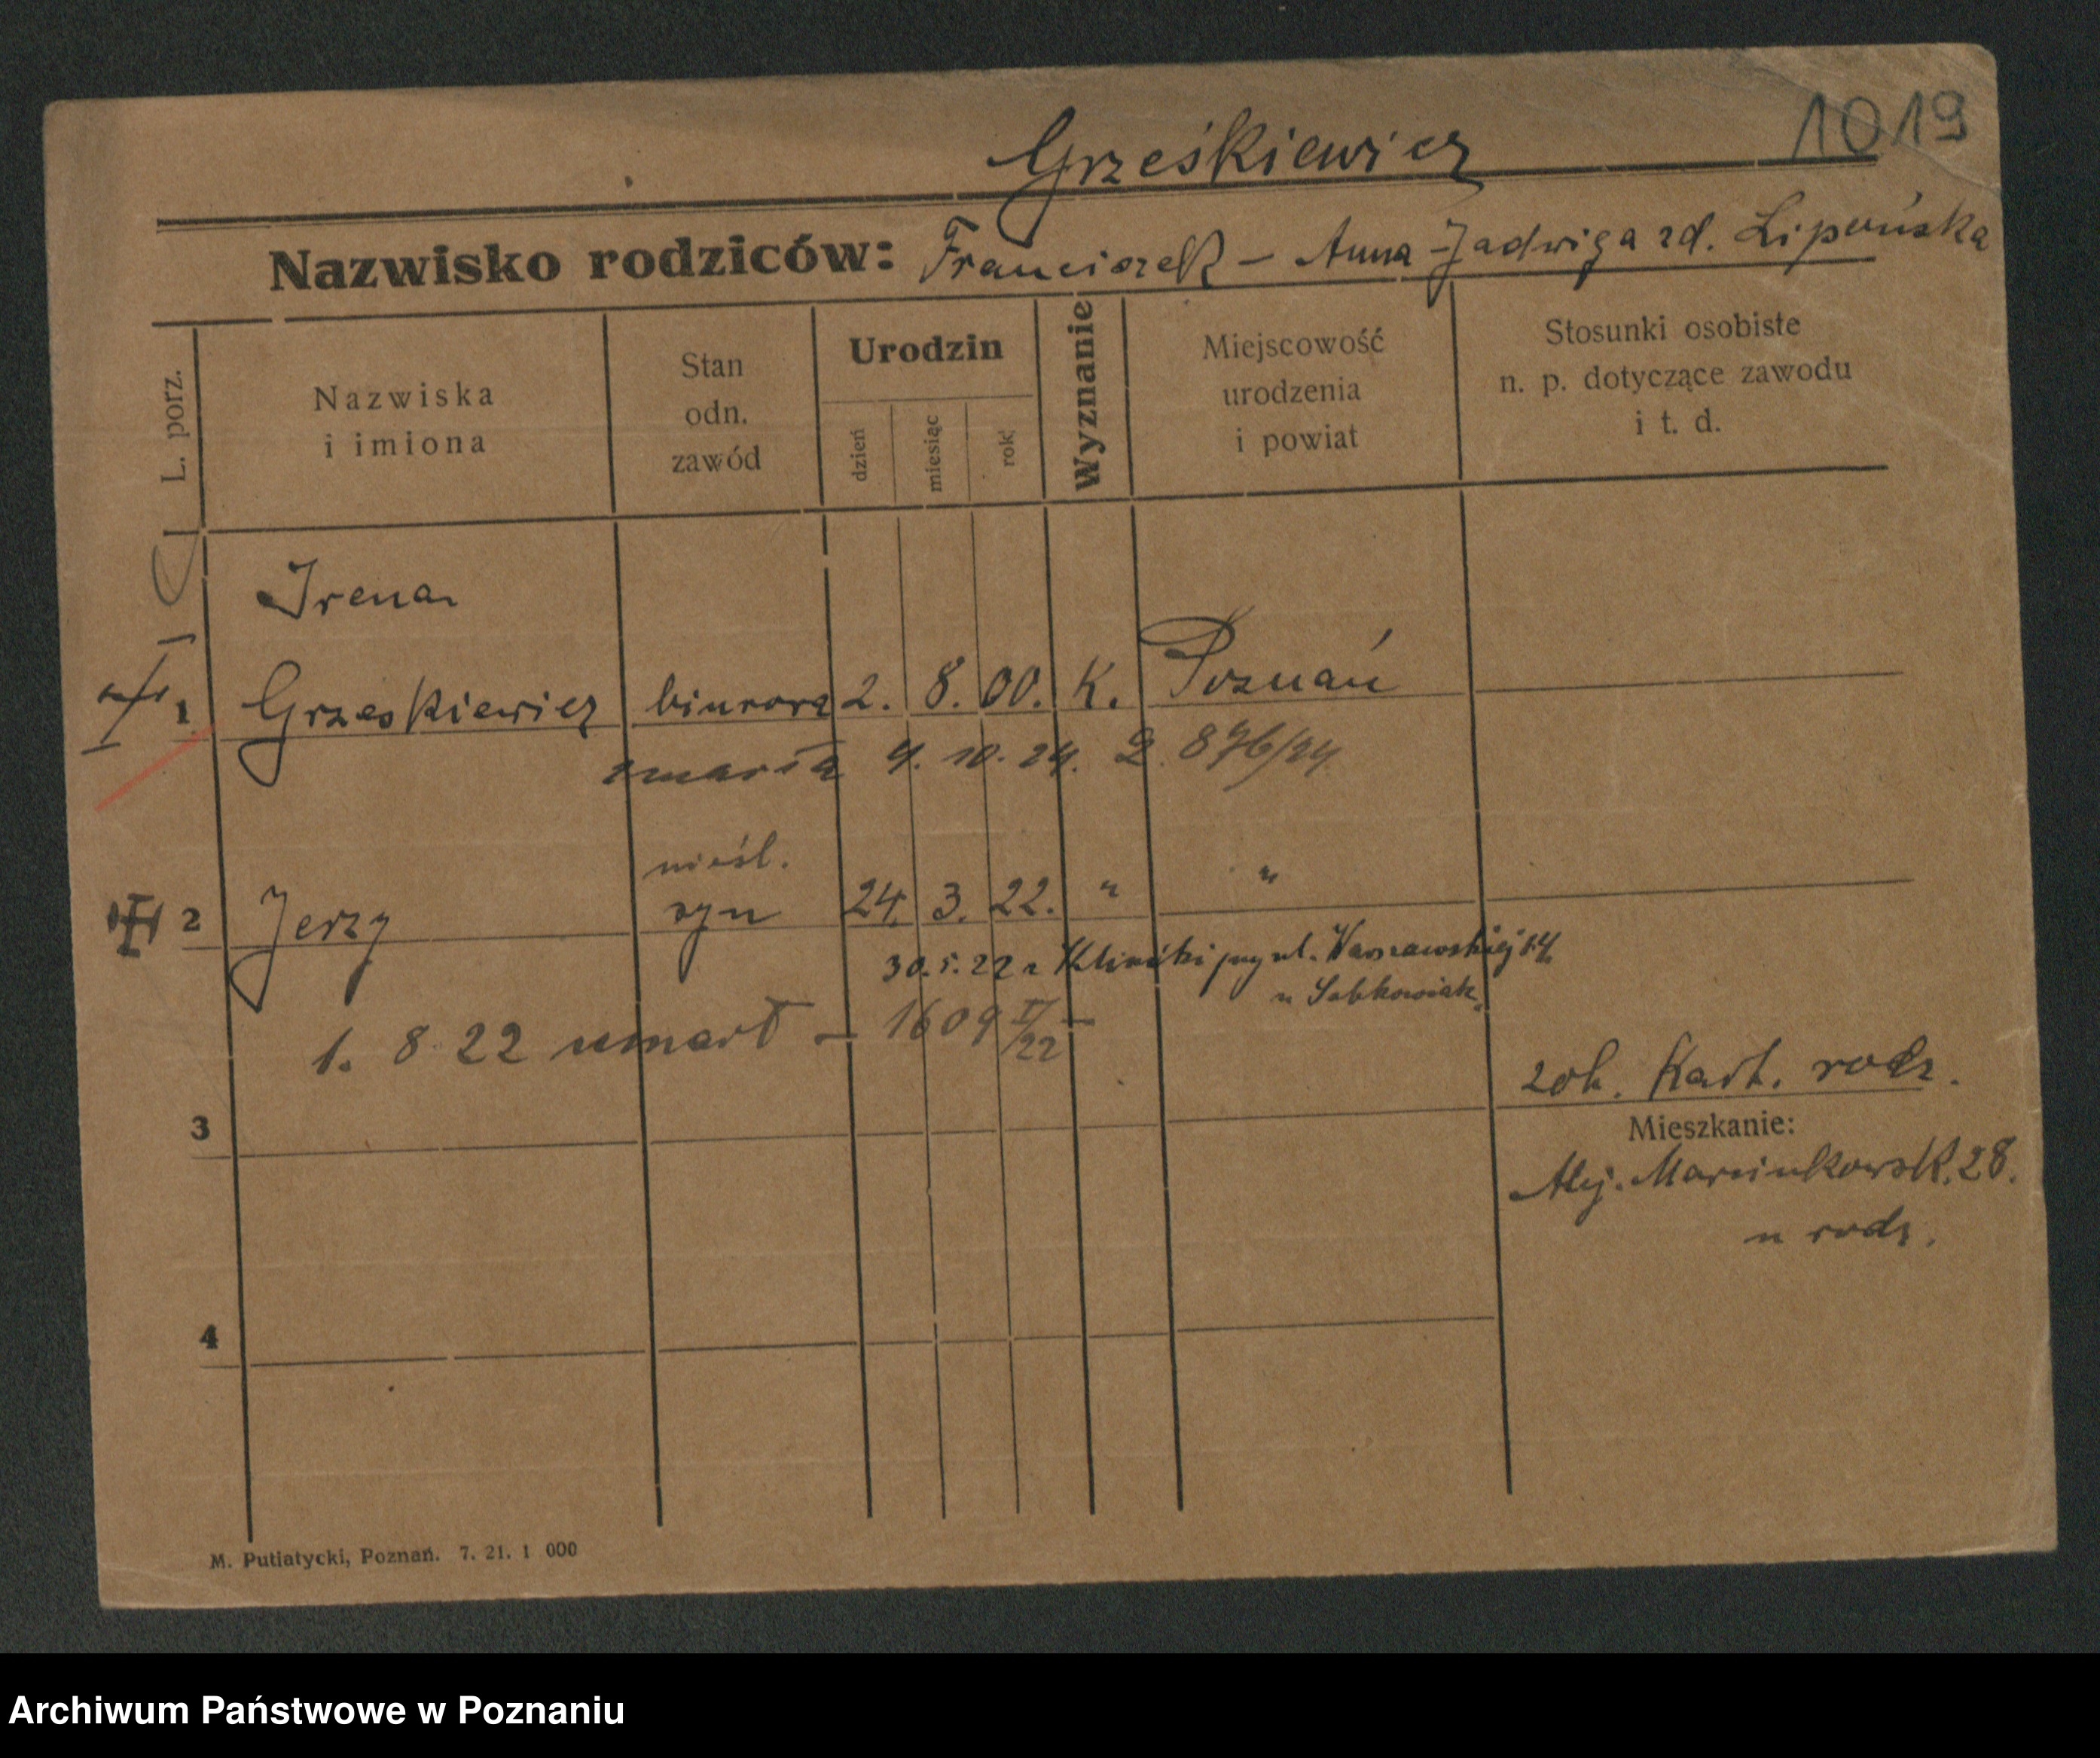 1019
Grześkiewicz
Nazwisko rodziców: Franciszek - Anna-Jadwiga zd. Lipońska
L. porz.
Nazwiska
i imiona
Stan
odn.
zawód
Urodzin
dzień
miesiąc
rok
Wyznanie
Miejscowość
urodzenia
i powiat
Stosunki osobiste
n. p. dotyczące zawodu
i t. d.
Irena
1 Grześkiewicz biurowa 2. 8. 00. K. Poznań
zmarła 9. 10. 24. 2. 876/24
nieśl.
2 Jerzy syn 24. 3. 22. " "
30.5.22 z Kliniki przy ul. Warszawskiej 14.
u Sobkowiak.
1. 8. 22 umarł - 1609 II/22 -
zob. Kart. rodz.
3
Mieszkanie:
Alej. Marcinkowsk. 28.
u rodz.
4
M. Putiatycki, Poznań. 7. 21. 1 000
Archiwum Państwowe w Poznaniu